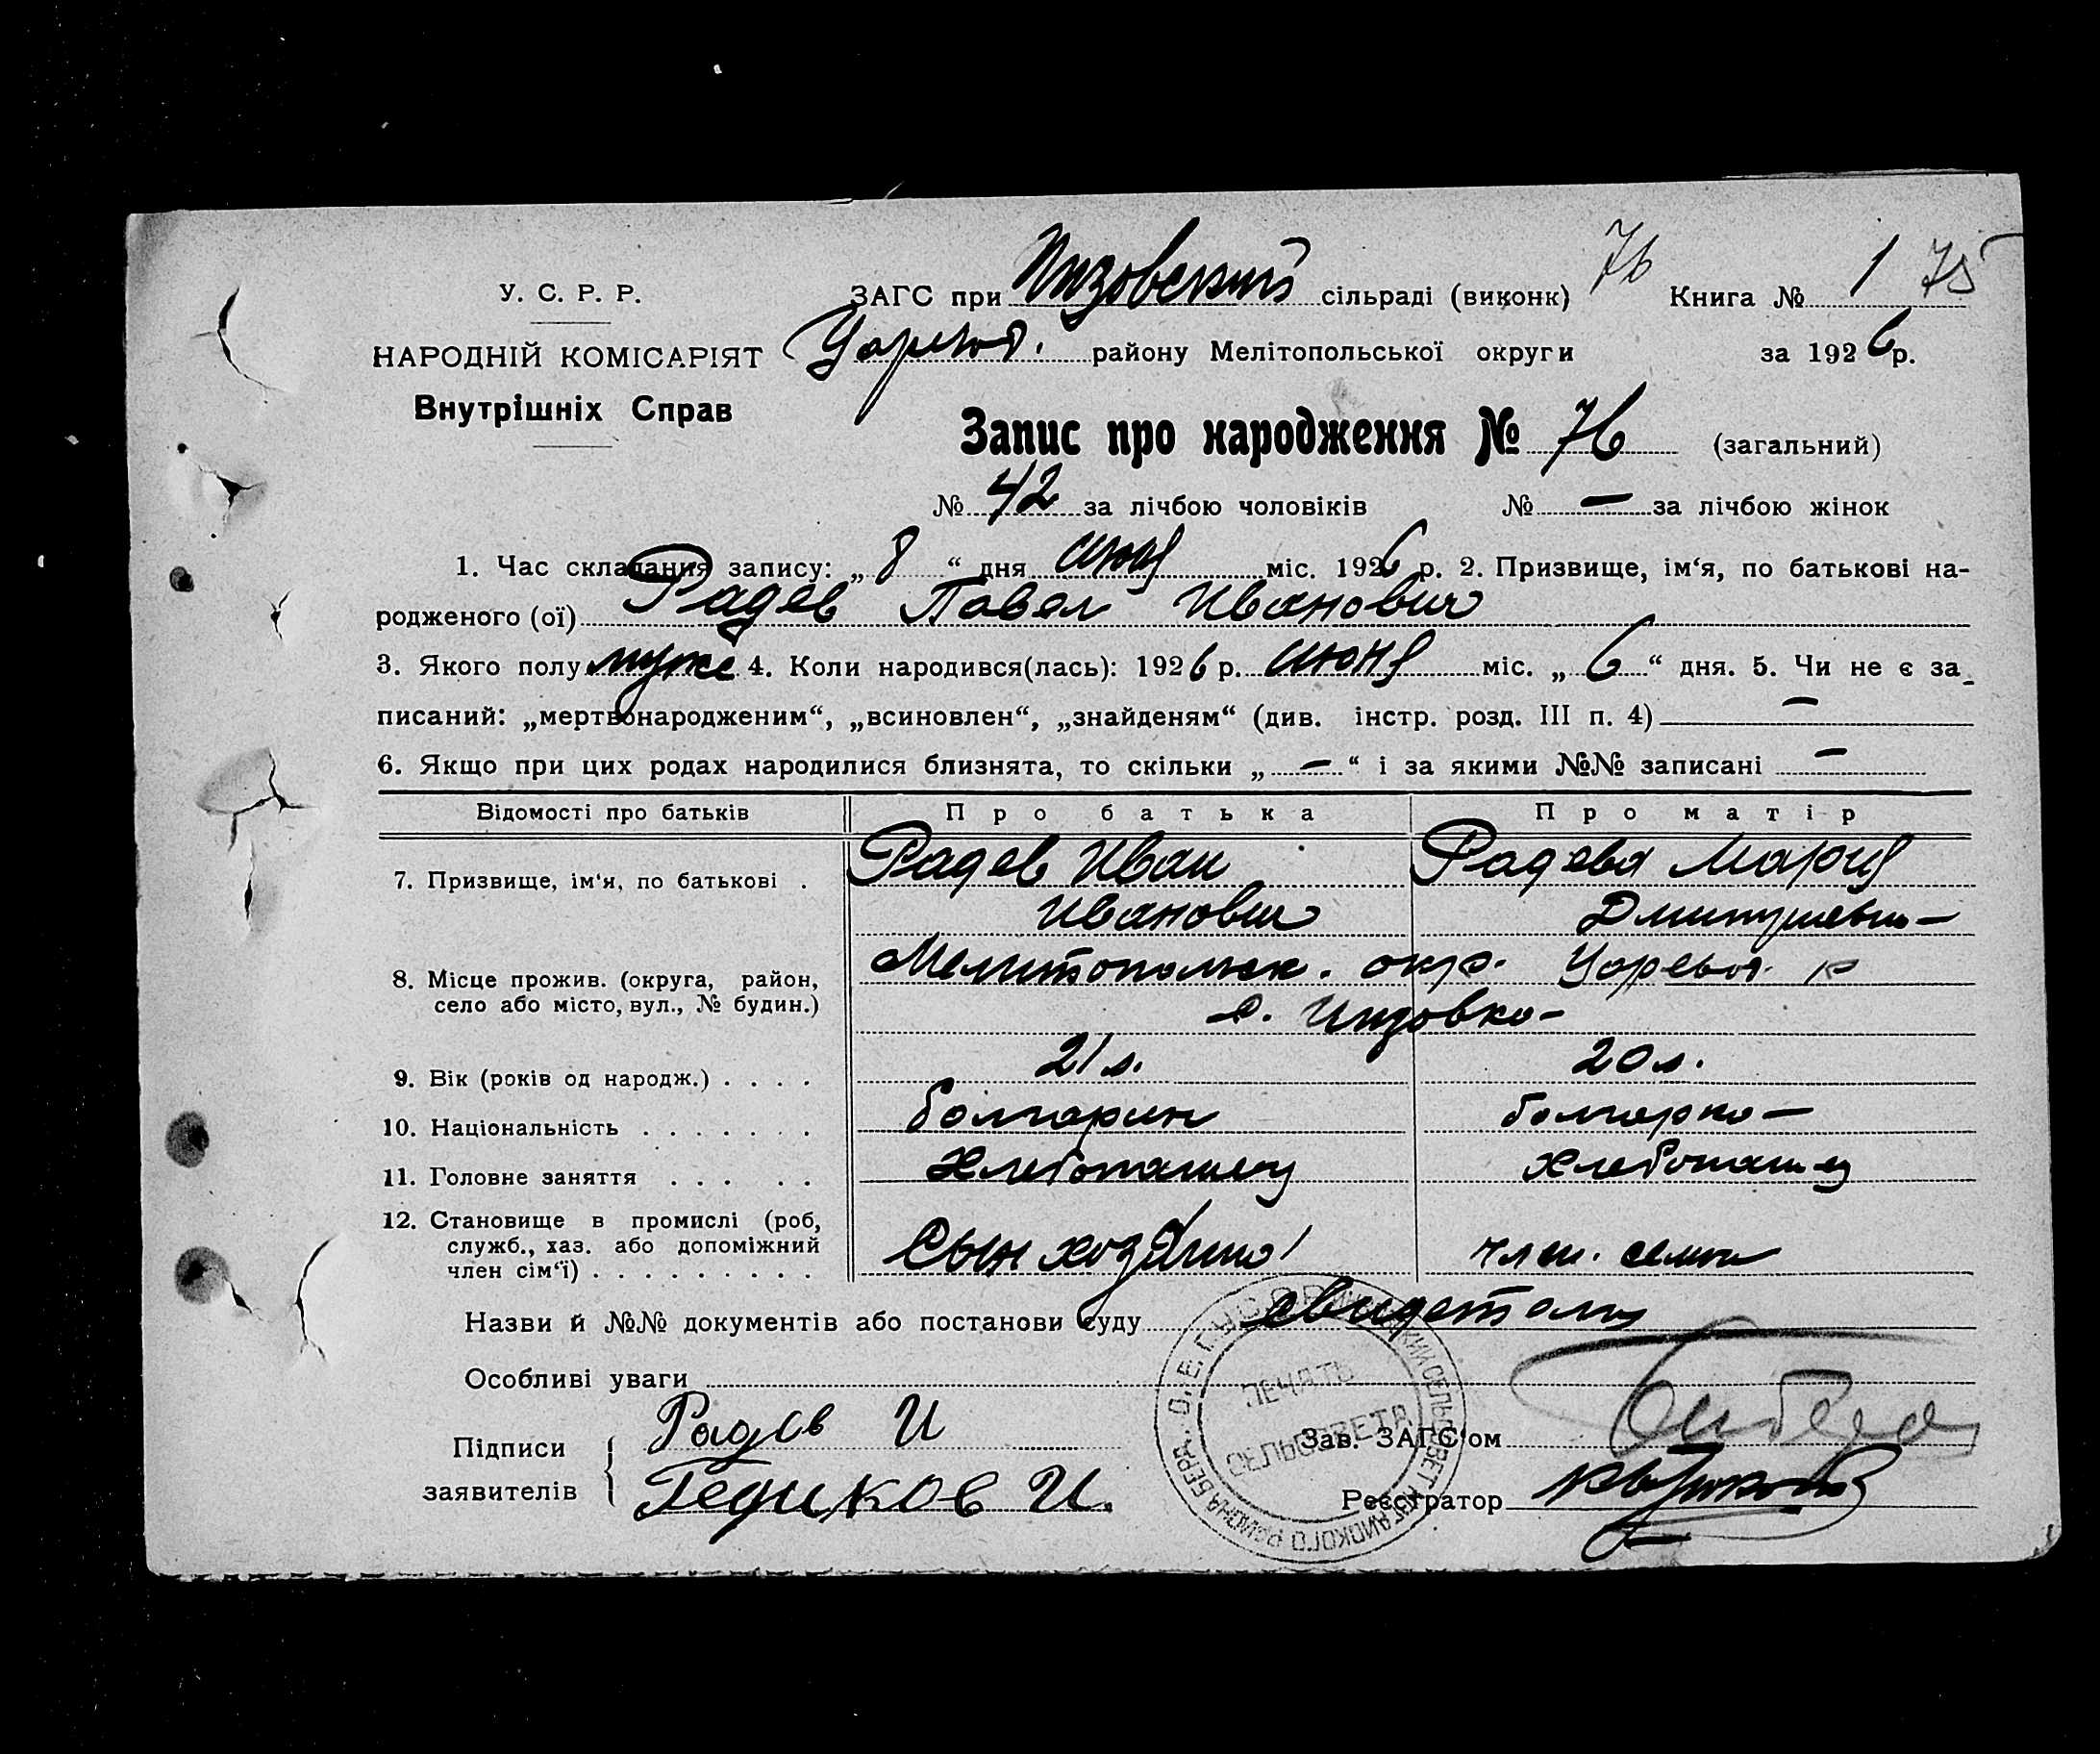 У. С. Р. Р.
НАРОДНІЙ КОМІСАРІЯТ
Внутрішніх Справ
76
ЗАГС при Инзовский сільраді (виконк) Книга № 1 75
району Мелітопольської округи за 1926 р.
Запис про народження № 76 (загальний)
№ 42 за лічбою чоловіків № — за лічбою жінок
1. Час складання запису: „ 8 “ дня июня міс. 1926 р. 2. Призвище, ім‘я, по батькові на-
родженого (ої) Радев Павел Иванович
3. Якого полу муже 4. Коли народився(лась): 1926 р. июня міс. „ 6 “ дня. 5. Чи не є за-
писаний: „мертвонародженим“, „всиновлен“, „знайденям“ (див. інстр. розд. III п. 4) —
6. Якщо при цих родах народилися близнята, то скільки „ — “ і за якими №№ записані —
Відомості про батьків Про батька Про матір
7. Призвище, ім‘я, по батькові . Радев Иван Радева Мария
Иванович Дмитриевна
8. Місце прожив. (округа, район, Мелитопольск. окр. р
село або місто, вул., № будин.) с. Инзовка
9. Вік (років од народж.) . . . . 21 л. 20 л.
10. Національність . . . . . . . болгарин болгарка
11. Головне заняття . . . . . Хлебопашец хлебопашец
12. Становище в промислі (роб,
служб., хаз. або допоміжний Сын хозяина член. семьи
член сім‘ї) . . . . . . . . .
Назви й №№ документів або постанови суду свидетели
Особливі уваги
Підписи Радев И Зав. ЗАГС‘ом
заявителів Гедиков И. Реєстратор
ПЕЧАТЬ
СЕЛЬСОВЕТА